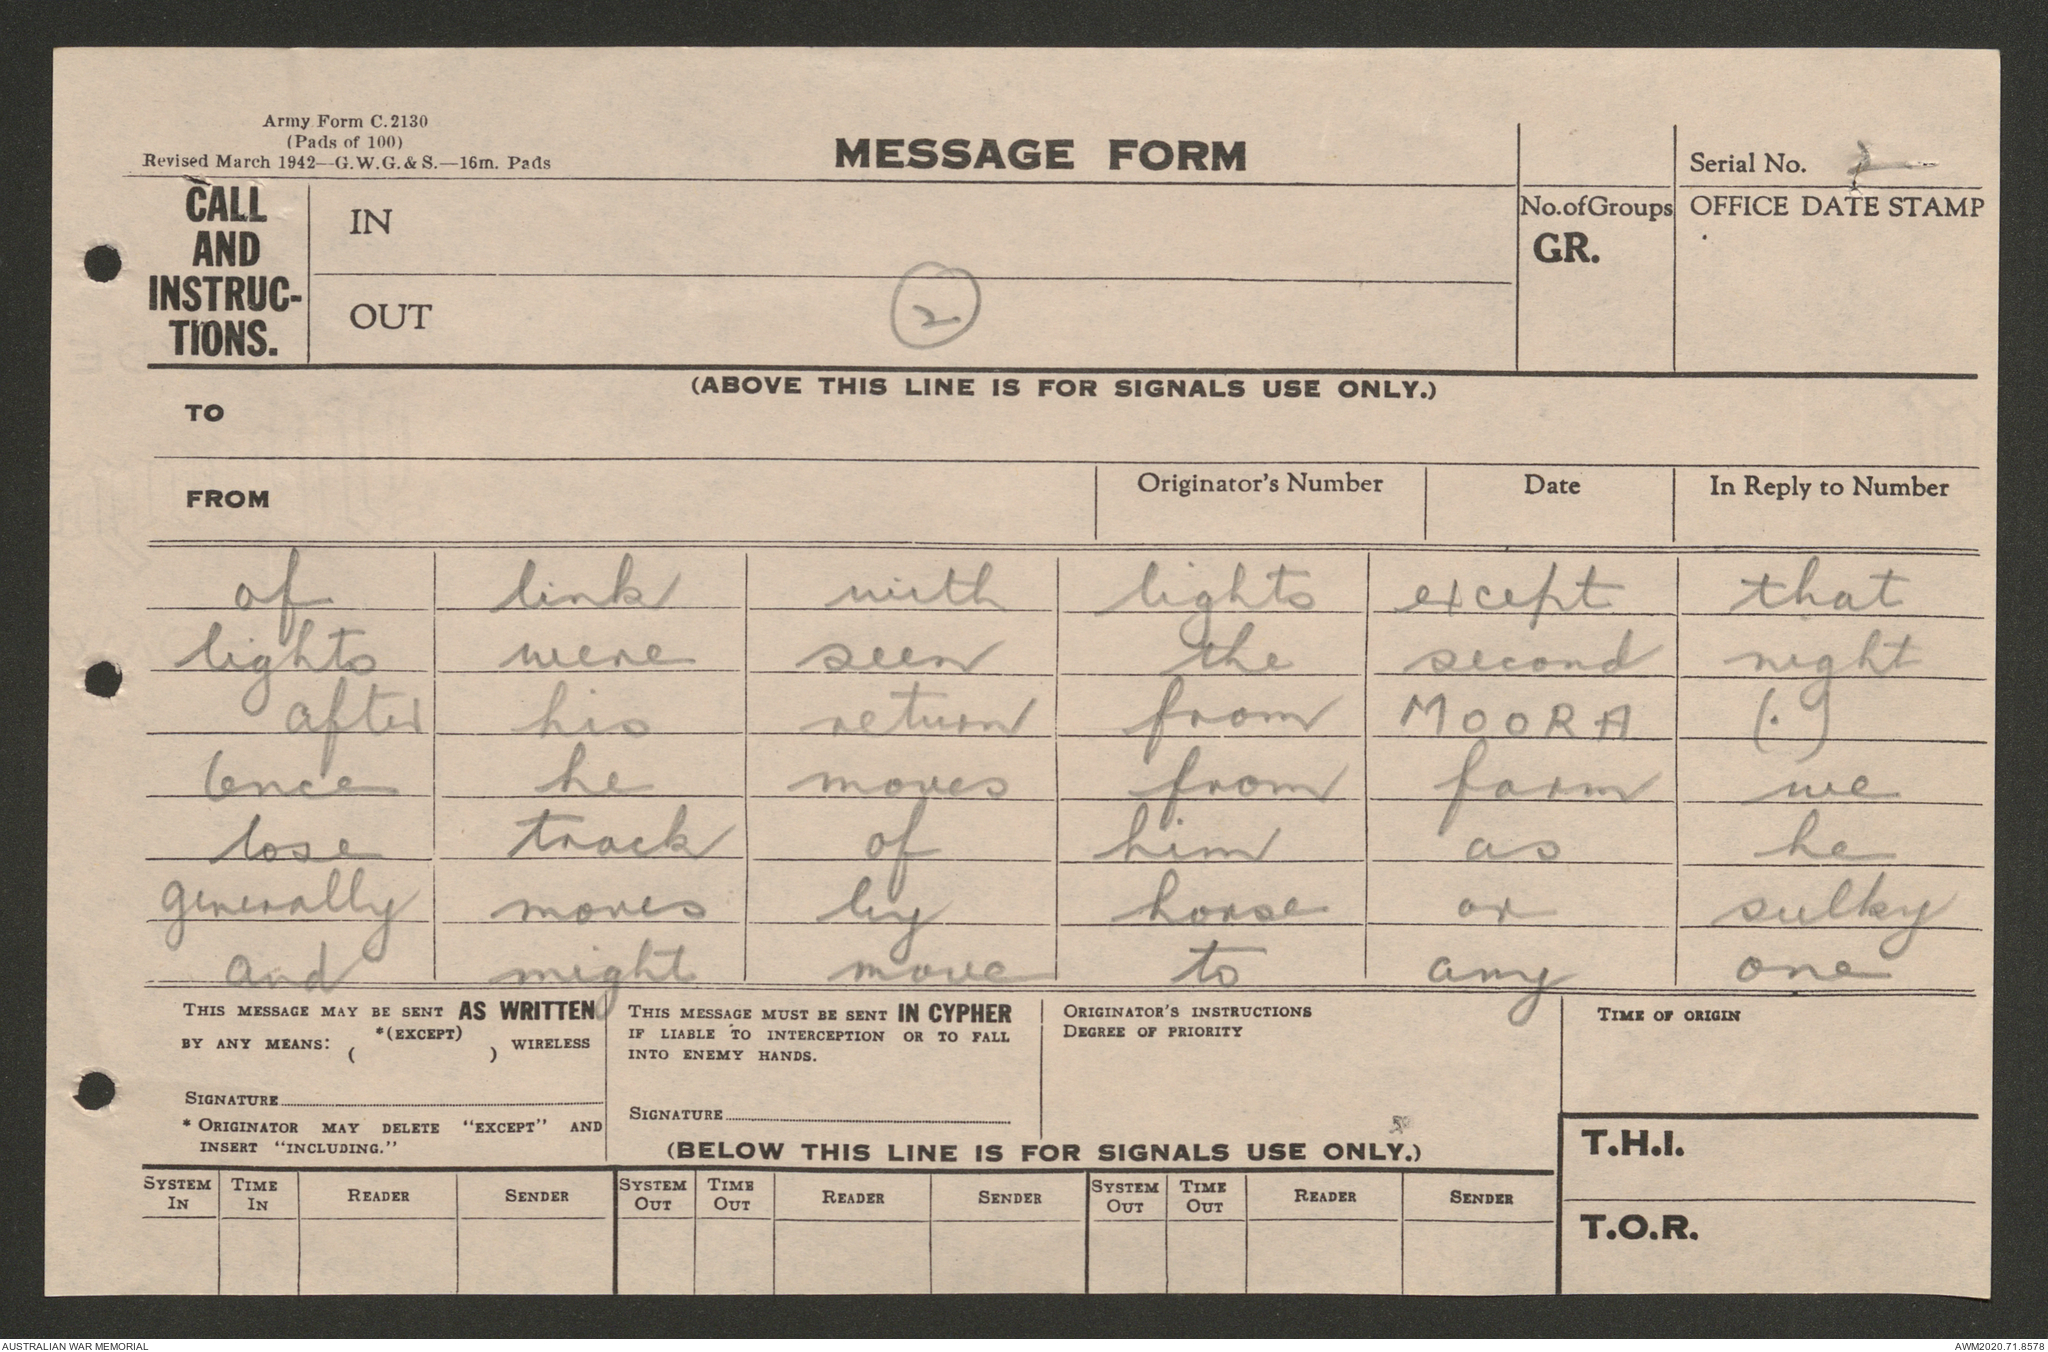 Army Form C.2130
(Pads of 100)
Revised March 1942—G.W.G.&S.—16m. Pads
MESSAGE FORM
Serial No.
CALL AND INSTRUC-TIONS.
IN
OUT
2
No. of Groups
GR.
OFFICE DATE STAMP
(ABOVE THIS LINE IS FOR SIGNALS USE ONLY.)
TO
FROM
Originator's Number
Date
In Reply to Number
of link with lights except that
lights were seen the second night
after his return from MOORA (.)
Once he moves from farm we
lose track of him as he
generally moves by horse or sulky
and might move to any one
THIS MESSAGE MAY BE SENT AS WRITTEN
BY ANY MEANS: *(EXCEPT) ( ) WIRELESS
SIGNATURE
* ORIGINATOR MAY DELETE "EXCEPT" AND
INSERT "INCLUDING."
THIS MESSAGE MUST BE SENT IN CYPHER
IF LIABLE TO INTERCEPTION OR TO FALL
INTO ENEMY HANDS.
SIGNATURE
ORIGINATOR'S INSTRUCTIONS
DEGREE OF PRIORITY
TIME OF ORIGIN
(BELOW THIS LINE IS FOR SIGNALS USE ONLY.)
T.H.I.
T.O.R.
SYSTEM IN TIME IN READER SENDER SYSTEM OUT TIME OUT READER SENDER SYSTEM OUT TIME OUT READER SENDER
AUSTRALIAN WAR MEMORIAL
AWM2020.71.8578